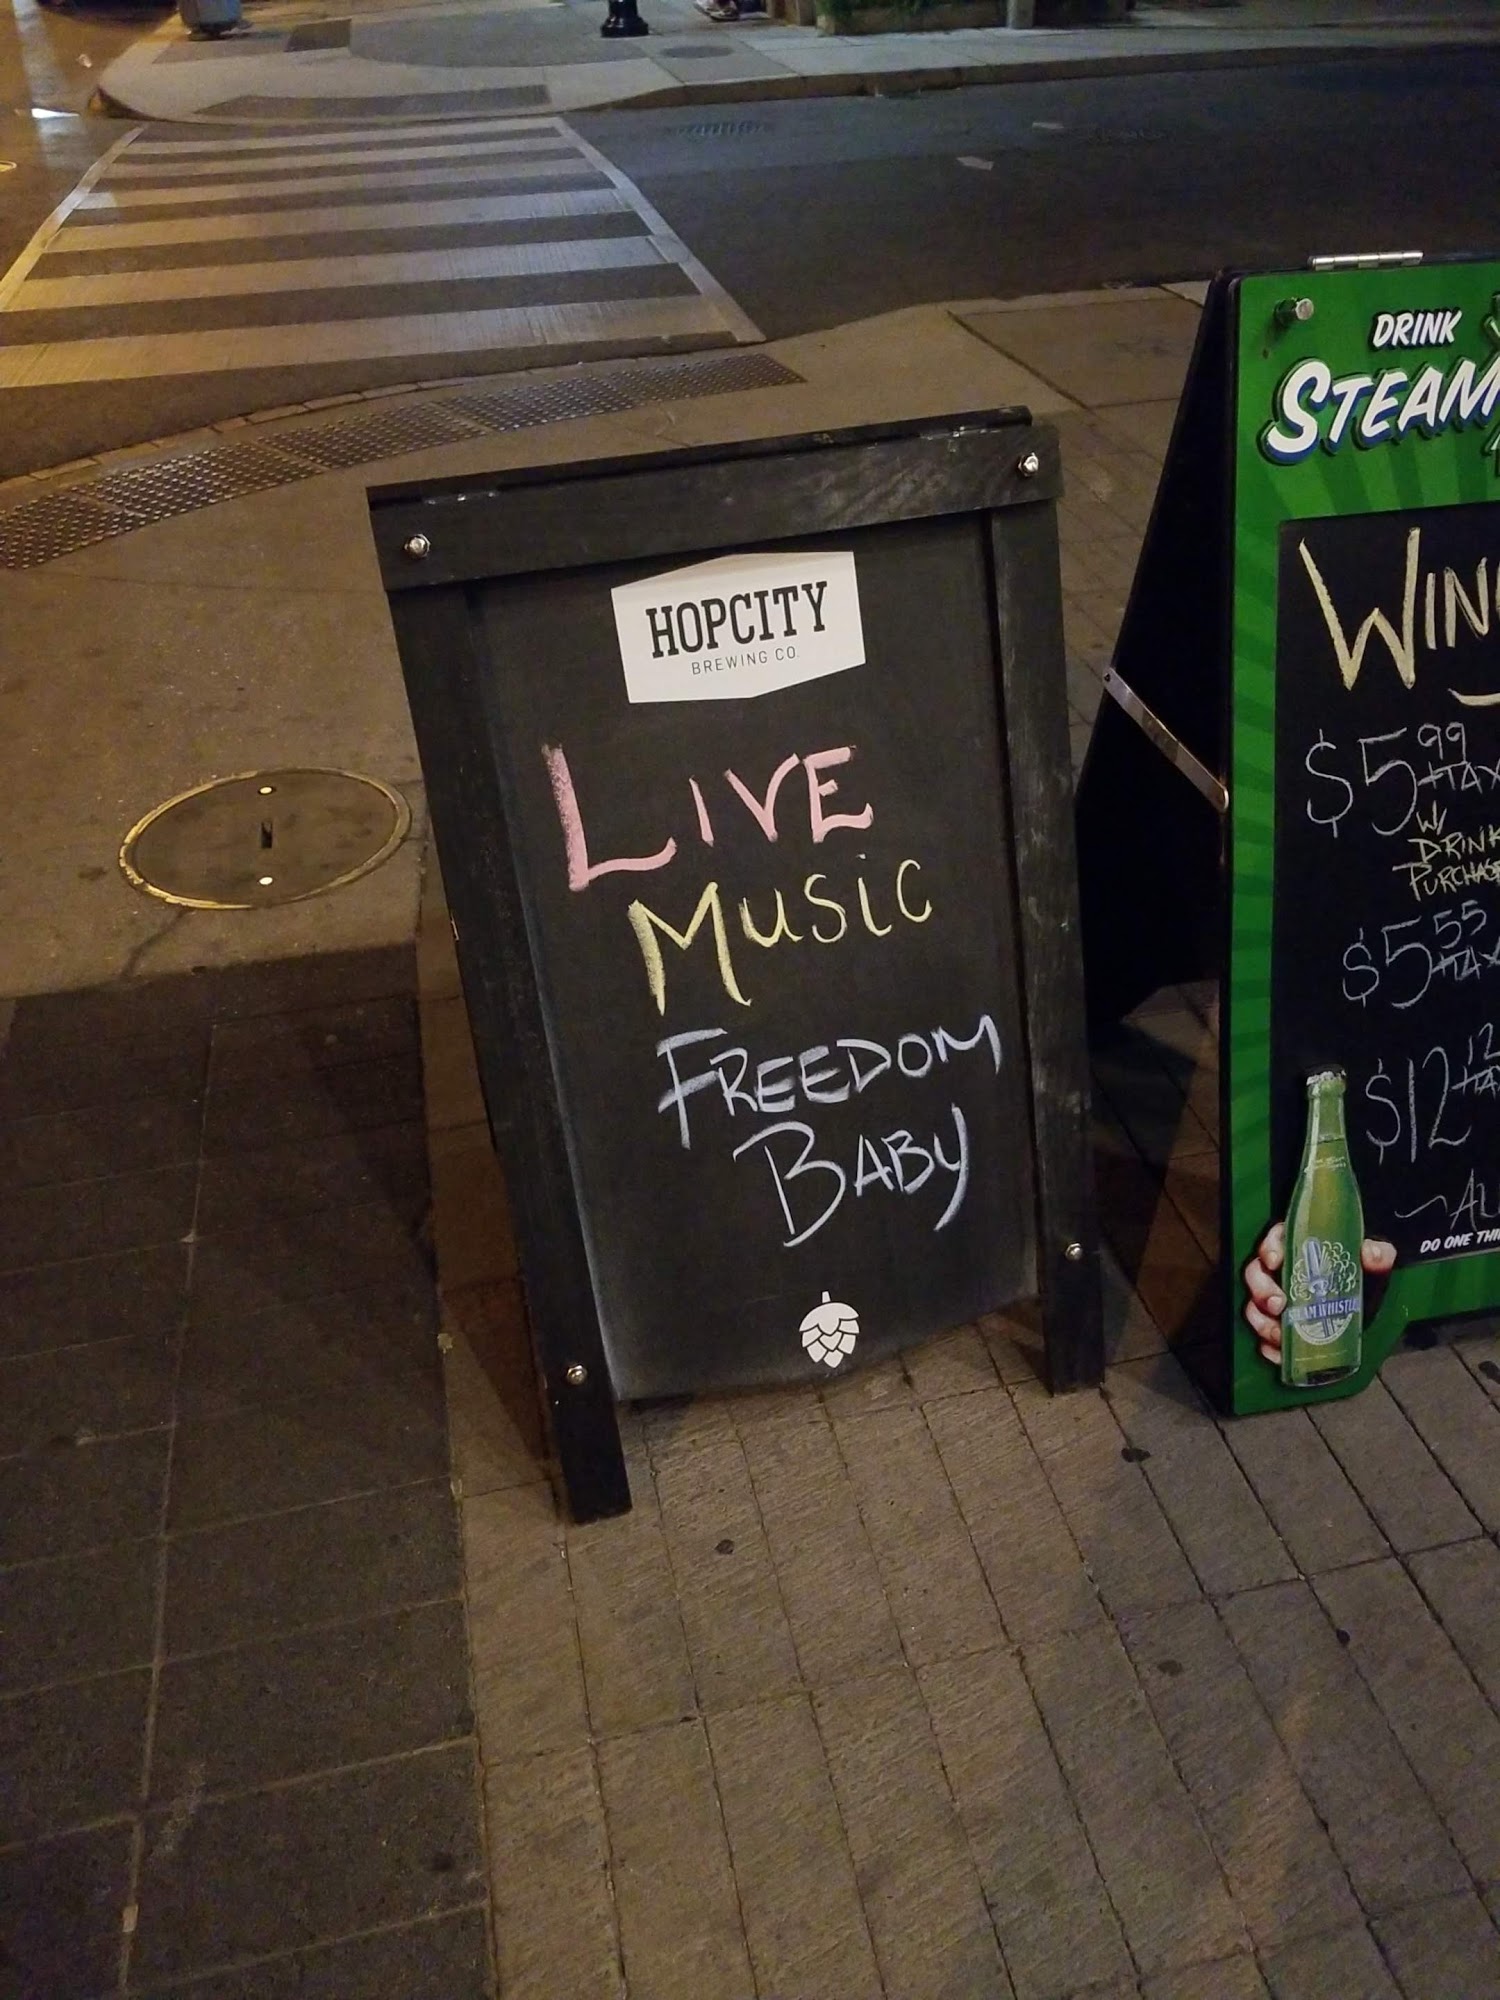 HOPCITY
BREWING CO.
LIVE
MUSIC
FREEDOM
BABY
DRINK
STEAM
$5.99
+TAX
W/
DRINK
$5.55
+TAX
$12.12
DO ONE
STEAM WHISTLE